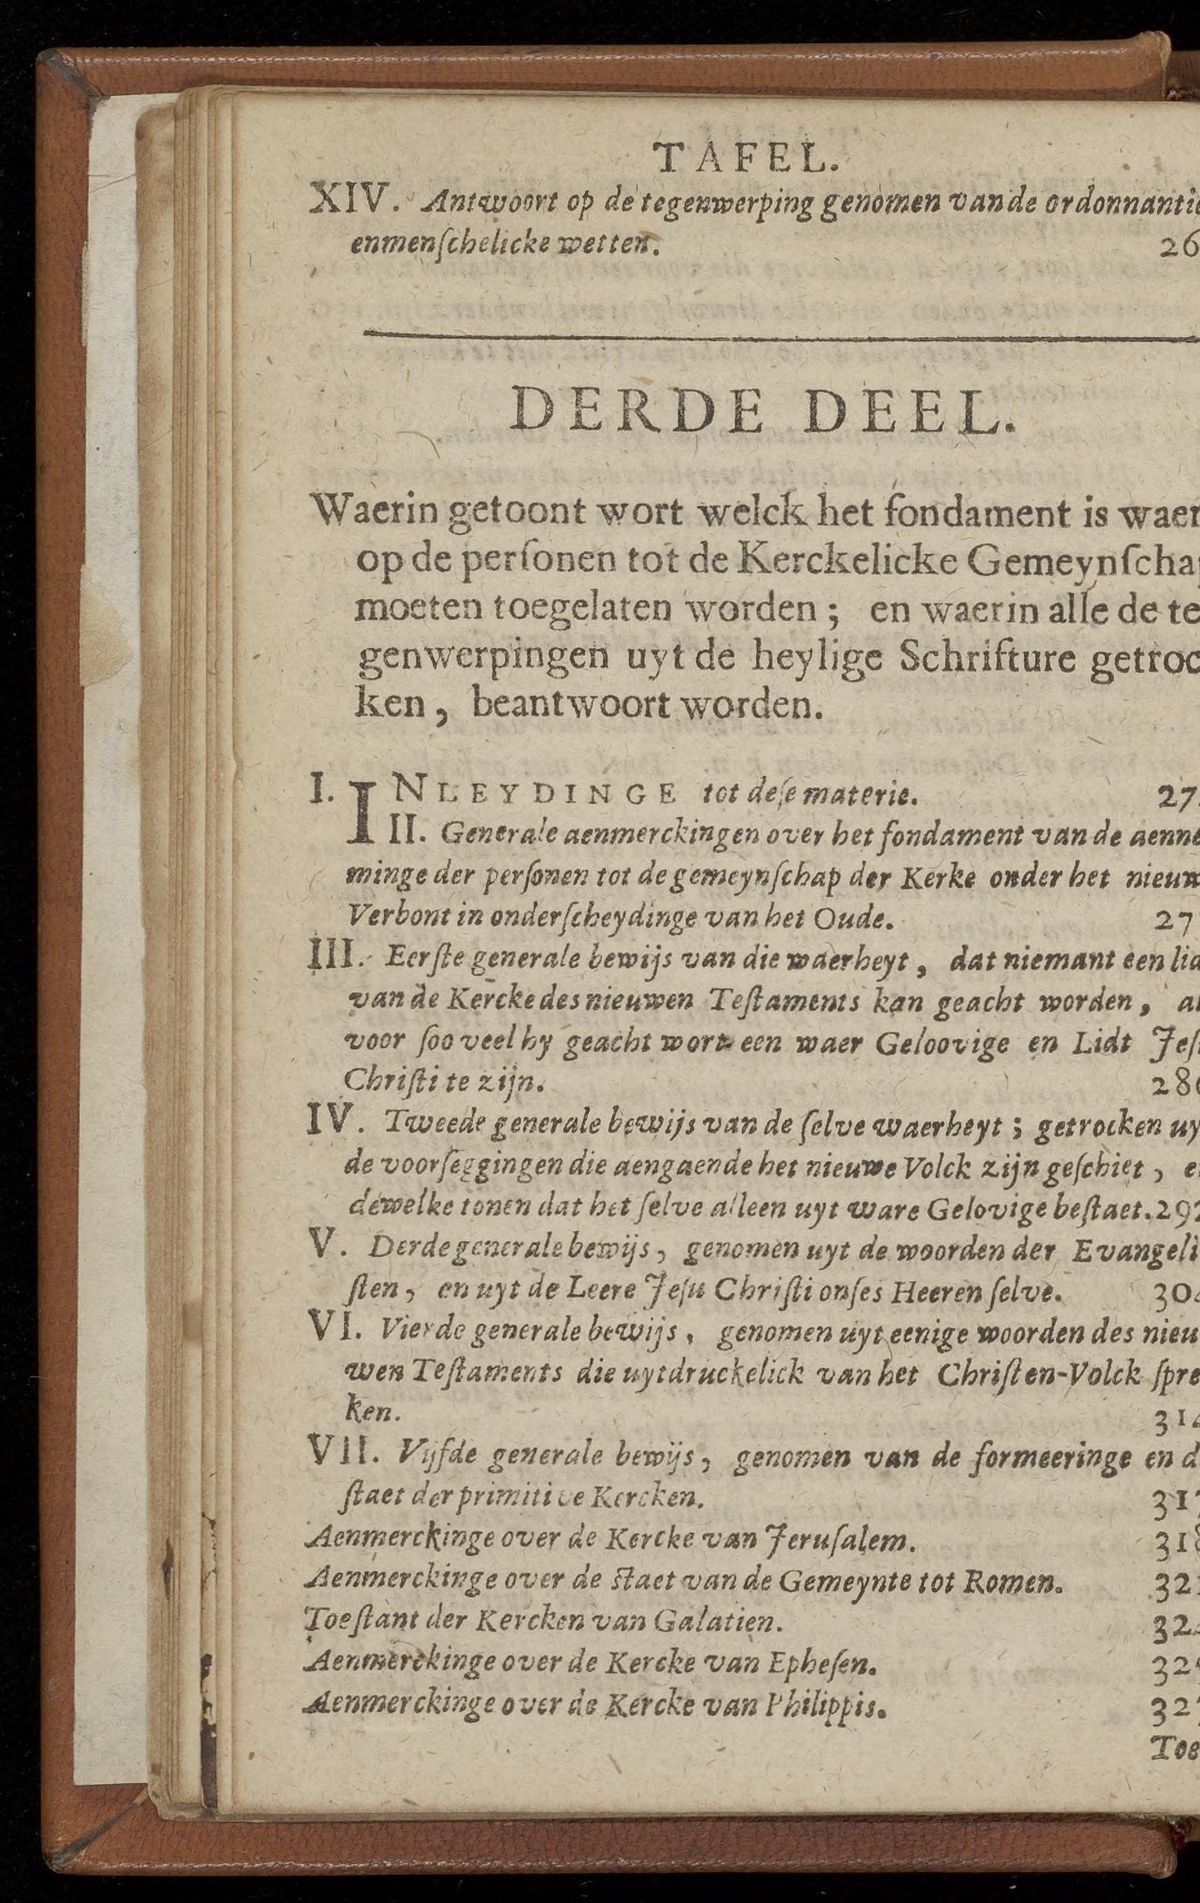 TAFEL.
XIV. Antwoort op de tegenwerping genomen van de ordonnantie
en menſchelicke wetten. 26
DERDE DEEL.
Waerin getoont wort welck het fondament is waer
op de perſonen tot de Kerckelicke Gemeynſcha
moeten toegelaten worden; en waerin alle de te
genwerpingen uyt de heylige Schrifture getroc
ken, beantwoort worden.
I. INLEYDINGE tot deſe materie. 27
II. Generale aenmerckingen over het fondament van de aenne
minge der perſonen tot de gemeynſchap der Kerke onder het nieuw
Verbont in onderſcheydinge van het Oude. 27
III. Eerſte generale bewijs van die waerheyt, dat niemant een lid
van de Kercke des nieuwen Teſtaments kan geacht worden, a
voor ſoo veel hy geacht wort een waer Geloovige en Lidt Jeſ
Chriſti te zijn. 28
IV. Tweede generale bewijs van de ſelve waerheyt; getrocken uy
de voorſeggingen die aengaende het nieuwe Volck zijn geſchiet, e
dewelke tonen dat het ſelve alleen uyt ware Gelovige beſtaet. 297
V. Derde generale bewijs, genomen uyt de woorden der Evangeli
ſten, en uyt de Leere Jeſu Chriſti onſes Heeren ſelve. 304
VI. Vierde generale bewijs, genomen uyt eenige woorden des nieu
wen Teſtaments die uytdruckelick van het Chriſten-Volck ſpre
ken. 314
VII. Vijfde generale bewijs, genomen van de formeeringe en d
ſtaet der primitive Kercken. 317
Aenmerckinge over de Kercke van Jeruſalem. 318
Aenmerckinge over de ſtaet van de Gemeynte tot Romen. 32
Toeſtant der Kercken van Galatien. 32
Aenmerckinge over de Kercke van Epheſen. 32
Aenmerckinge over de Kercke van Philippis. 327
Toe